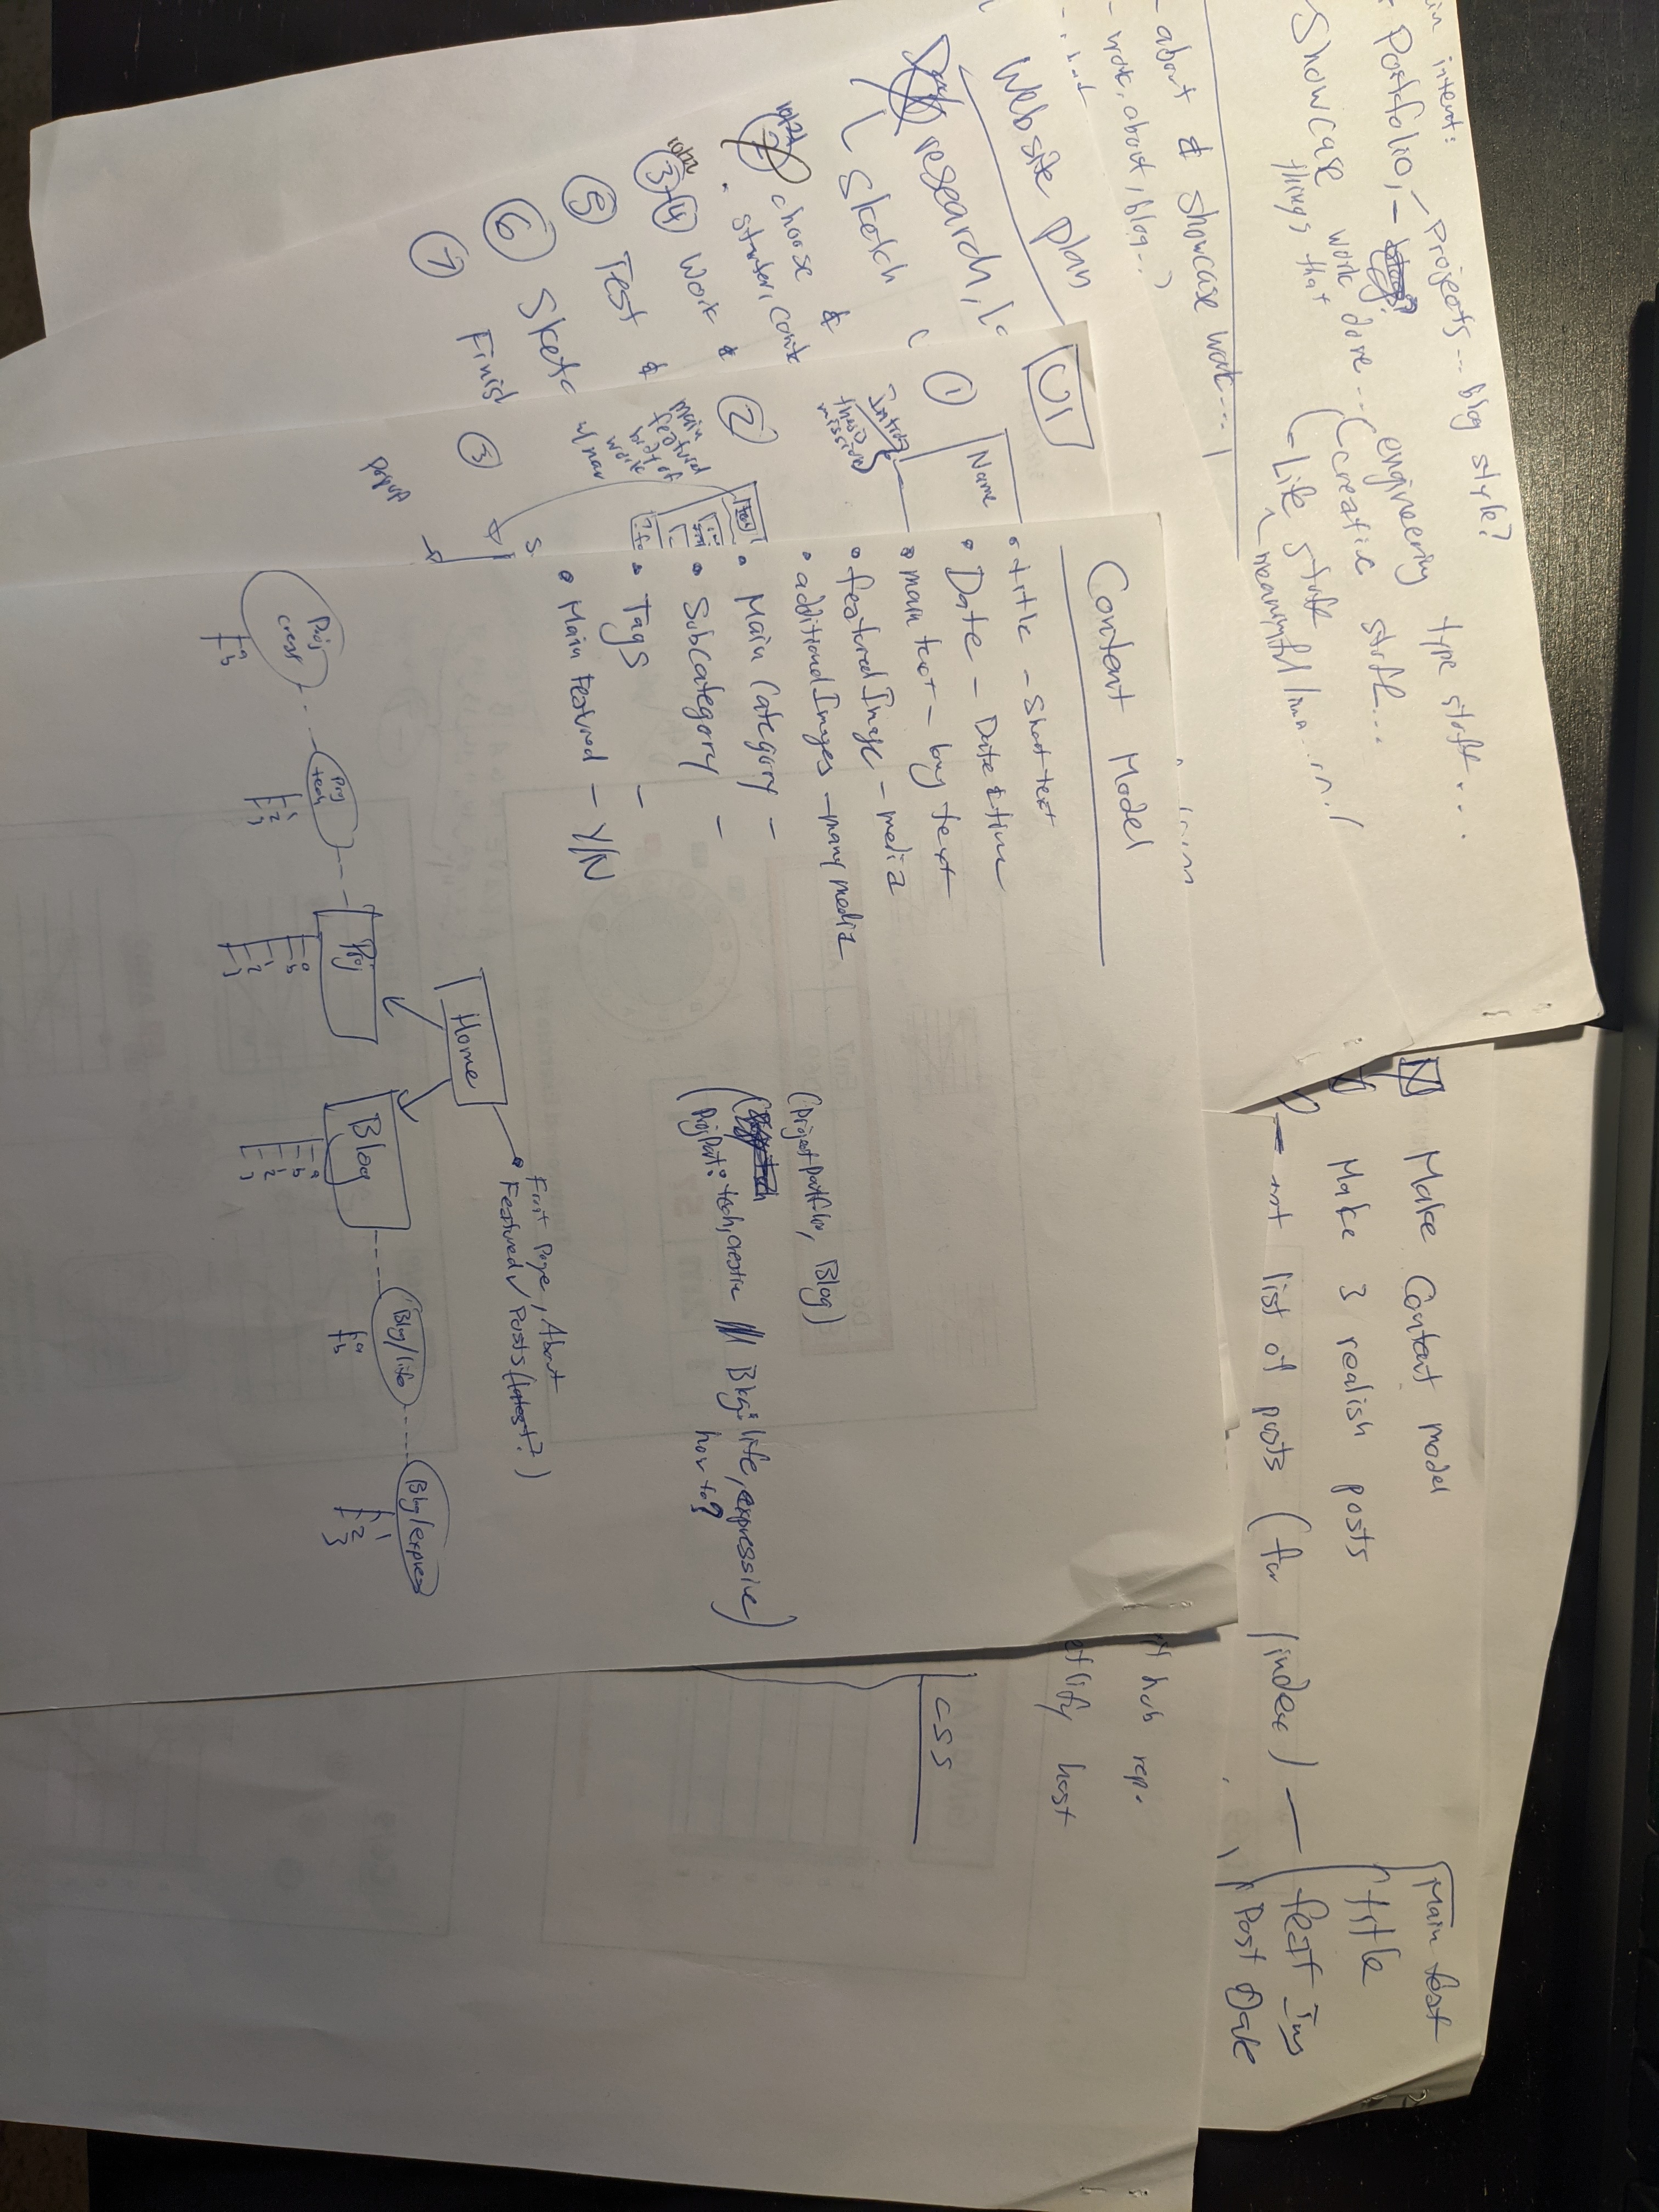 Portfolio, - Projects... blog style?
Showcase work done...
things that
engineering type stuff...
(creative stuff...
(- Life stuff
meaningful
- about & showcase work...
- work, about, blog..)
Website Plan
research,
Sketch
choose &
starter,
3+4 Work &
5 Test &
6
7
UI
1
Name
2
Main
featured
work
w/nav
3
popup
Content Model
• title - short text
• Date - Date & time
• main text - long text
• featured Image - media
• additional Images - many media
• Main Category -
• Subcategory -
• Tags -
• Main Featured - Y/N
(project portfolio, Blog)
(Proj Port: tech, creative /// Blog: life, expressive)
how to?
Home
Front Page, About
• Featured Posts (latest?)
Proj
creat
a
b
Proj
tech
1
2
3
Proj
a
b
1
2
3
Blog
a
b
1
2
3
Blog/life
a
b
Blog/express
1
2
3
Make Content model
Make 3 realish posts
list of posts (for index) -
Main text
title
feat Img
Post Date
hub rep.
etlify host
CSS